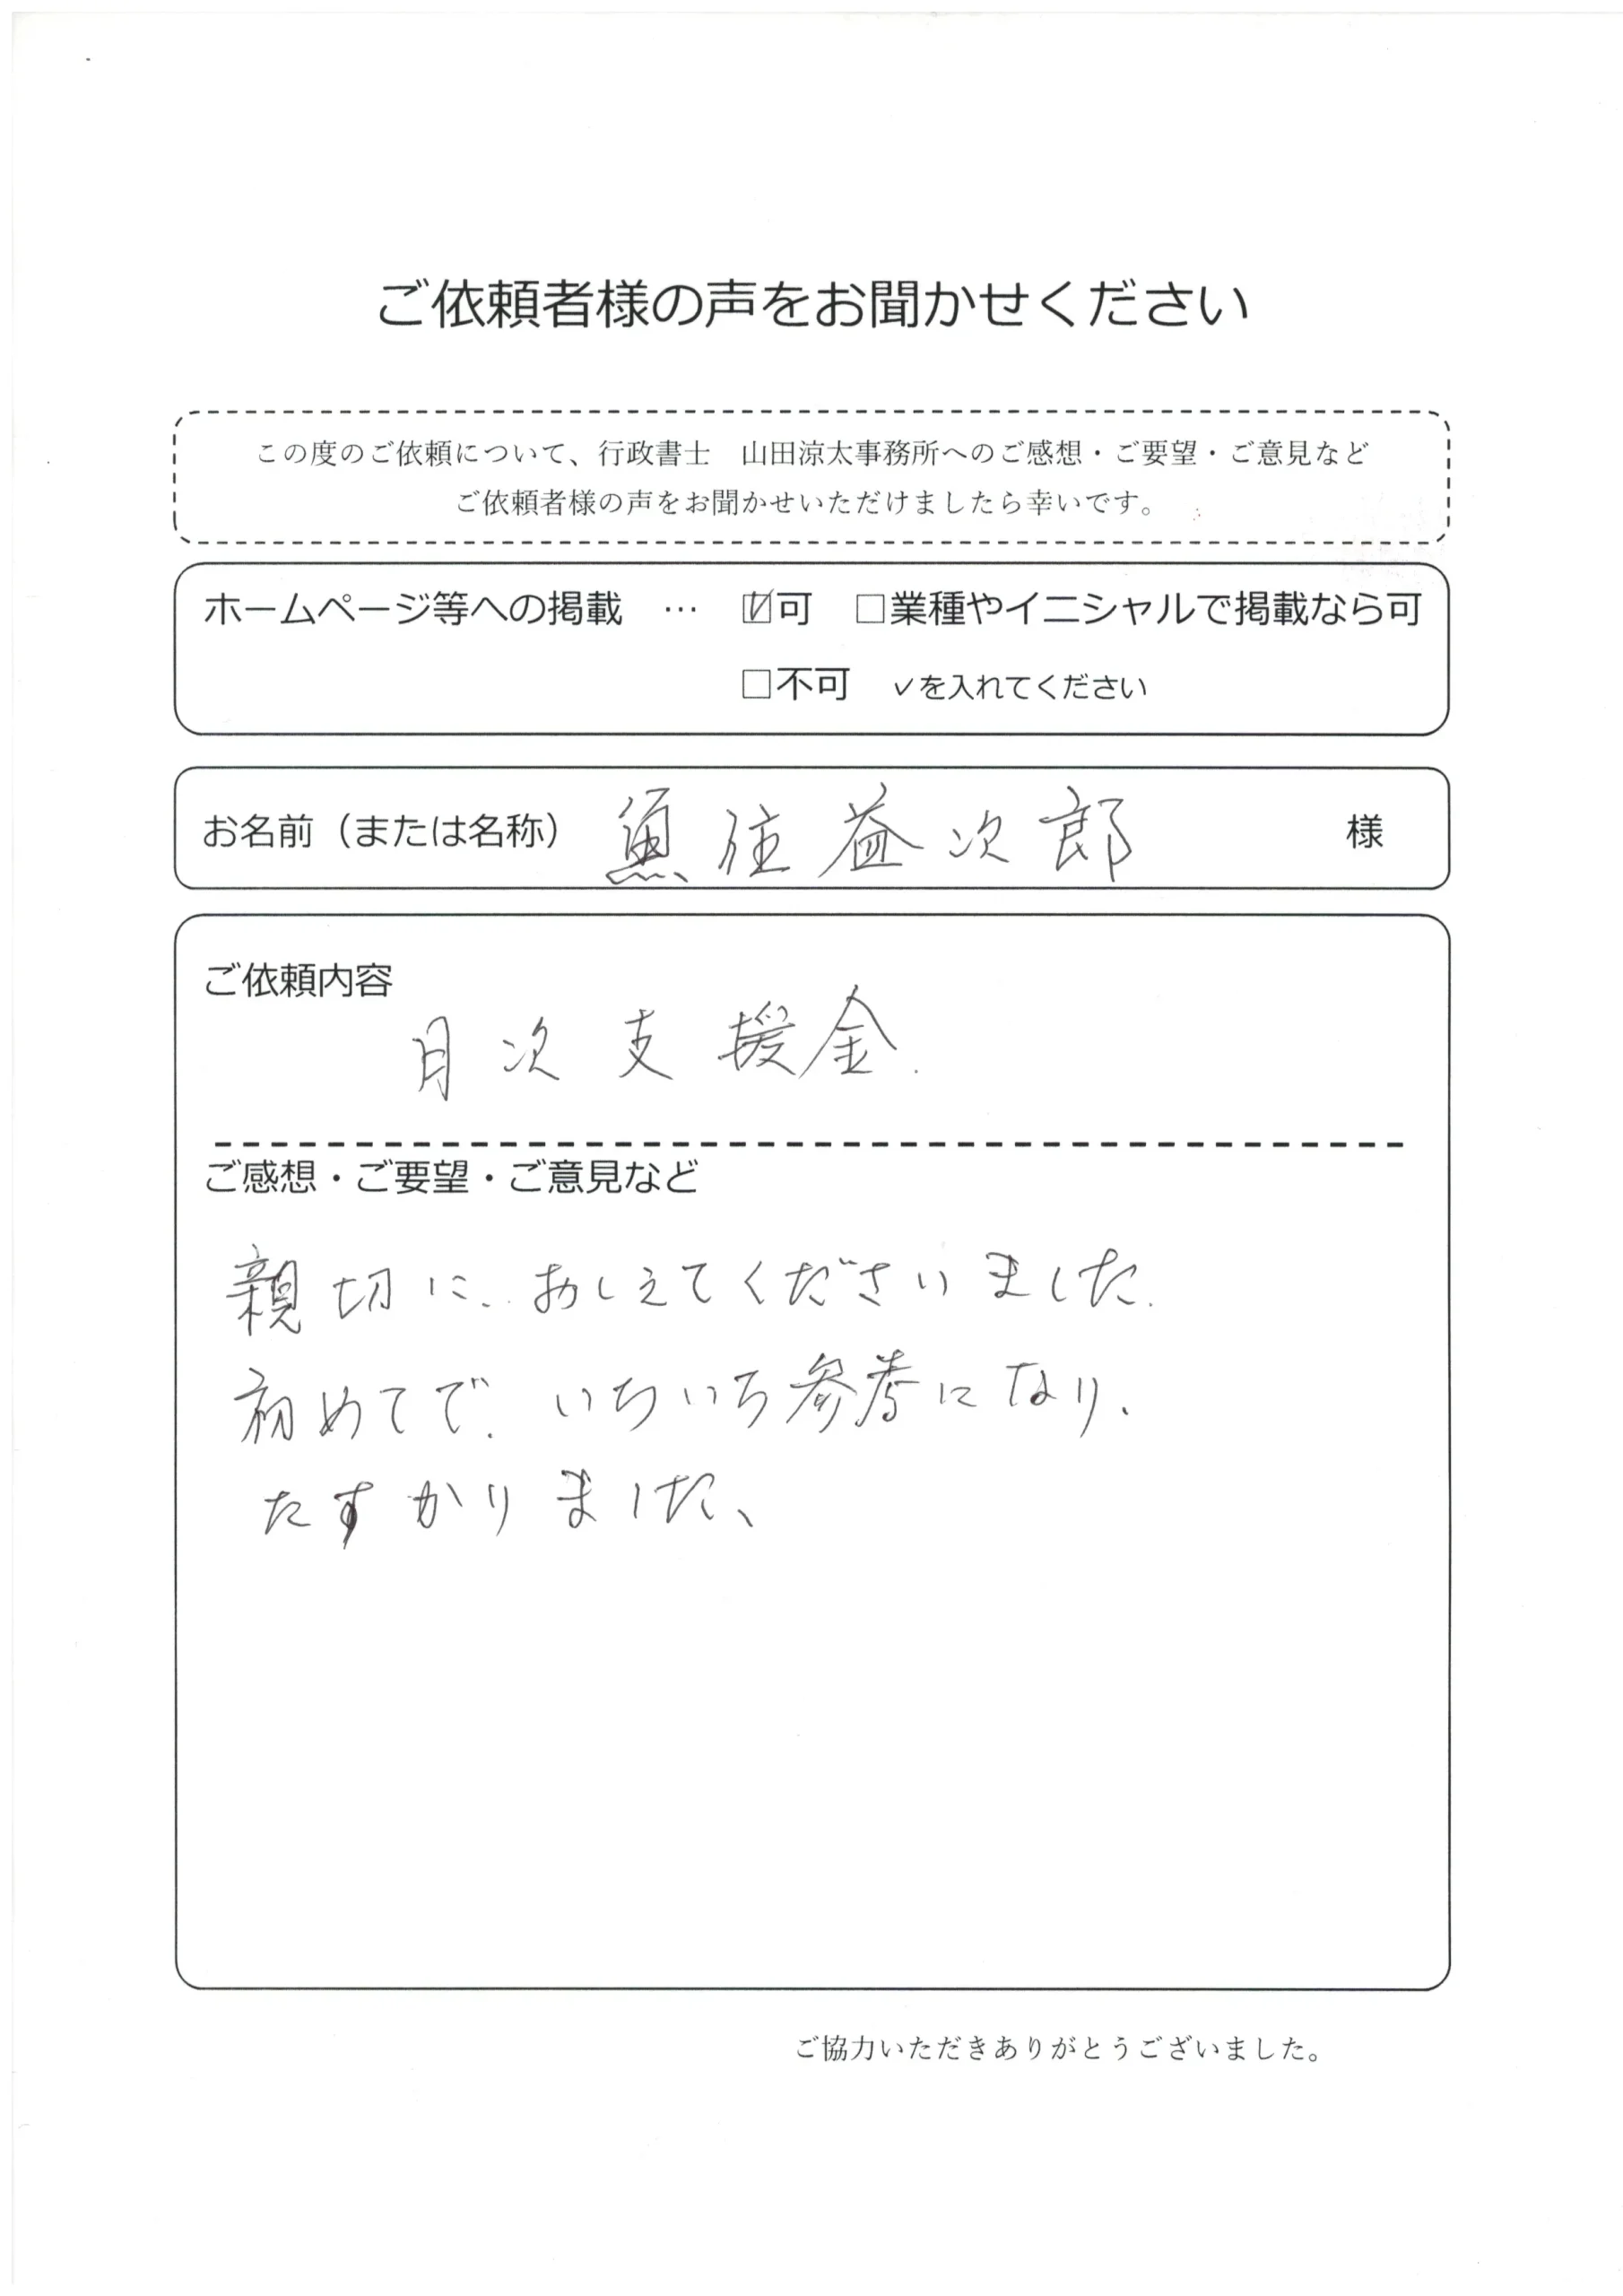 ご依頼者様の声をお聞かせください
この度のご依頼について、行政書士　山田涼太事務所へのご感想・ご要望・ご意見など
ご依頼者様の声をお聞かせいただけましたら幸いです。
ホームページ等への掲載　…　☑可　□業種やイニシャルで掲載なら可
□不可　✓を入れてください
お名前（または名称）　魚住益次郎　様
ご依頼内容
月次支援金.
ご感想・ご要望・ご意見など
親切に、おしえてくださいました.
初めてで、いちいち参考になり、
たすかりました、
ご協力いただきありがとうございました。